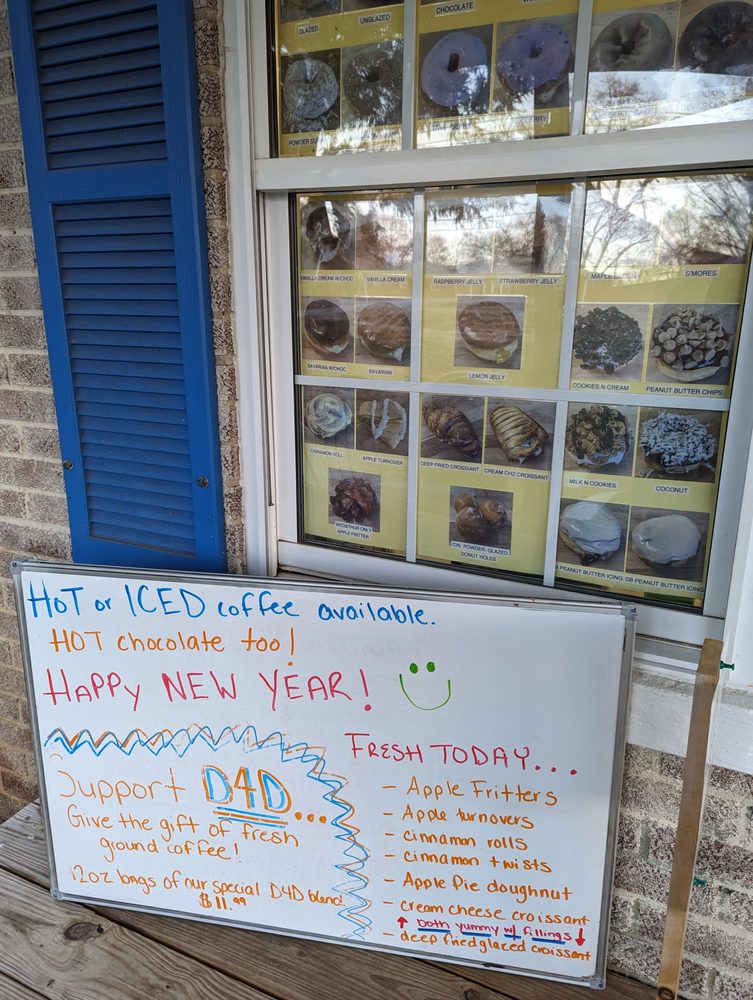 GLAZED
UNGLAZED
CHOCOLATE
POWDER
VANILLA CREAM W/CHOC
VANILLA CREAM
RASPBERRY JELLY
STRAWBERRY JELLY
MAPLE BACON
S'MORES
BAVARIAN W/CHOC
BAVARIAN
LEMON JELLY
COOKIES N CREAM
PEANUT BUTTER CHIPS
CINNAMON ROLL
APPLE TURNOVER
DEEP FRIED CROISSANT
CREAM CHZ CROISSANT
MILK N COOKIES
COCONUT
WED&THUR ONLY
APPLE FRITTER
CIN. POWDER, GLAZED
DONUT HOLES
PEANUT BUTTER ICING
SB PEANUT BUTTER ICING
HOT or ICED coffee available.
HOT chocolate too!
HAPPY NEW YEAR!
Support D4D...
Give the gift of fresh
ground coffee!
12oz bags of our special D4D blend!
$11.99
FRESH TODAY...
- Apple Fritters
- Apple turnovers
- cinnamon rolls
- cinnamon twists
- Apple Pie doughnut
- cream cheese croissant
↑ both yummy w/ fillings ↓
- deep fried glazed croissant